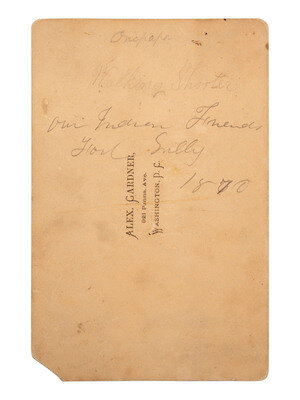 Oncpapa
Walking Shooter
our Indian Friends
Fort Sully
1870
ALEX. GARDNER,
921 PENNA. AVE.
WASHINGTON, D. C.